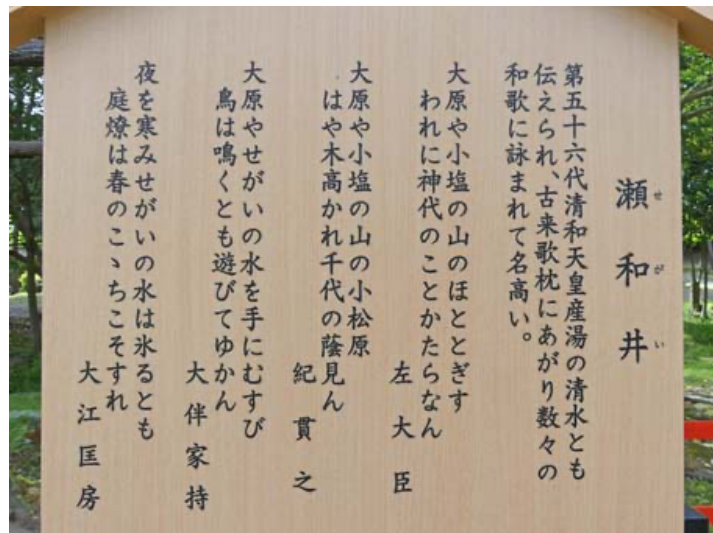 瀬和井
せがい
第五十六代清和天皇産湯の清水とも
伝えられ、古来歌枕にあがり数々の
和歌に詠まれて名高い。
大原や小塩の山のほととぎす
われに神代のことかたらなん
左大臣
大原や小塩の山の小松原
はや木高かれ千代の蔭見ん
紀貫之
大原やせがいの水を手にむすび
鳥は鳴くとも遊びてゆかん
大伴家持
夜を寒みせがいの水は氷るとも
庭燎は春のこゝちこそすれ
大江匡房